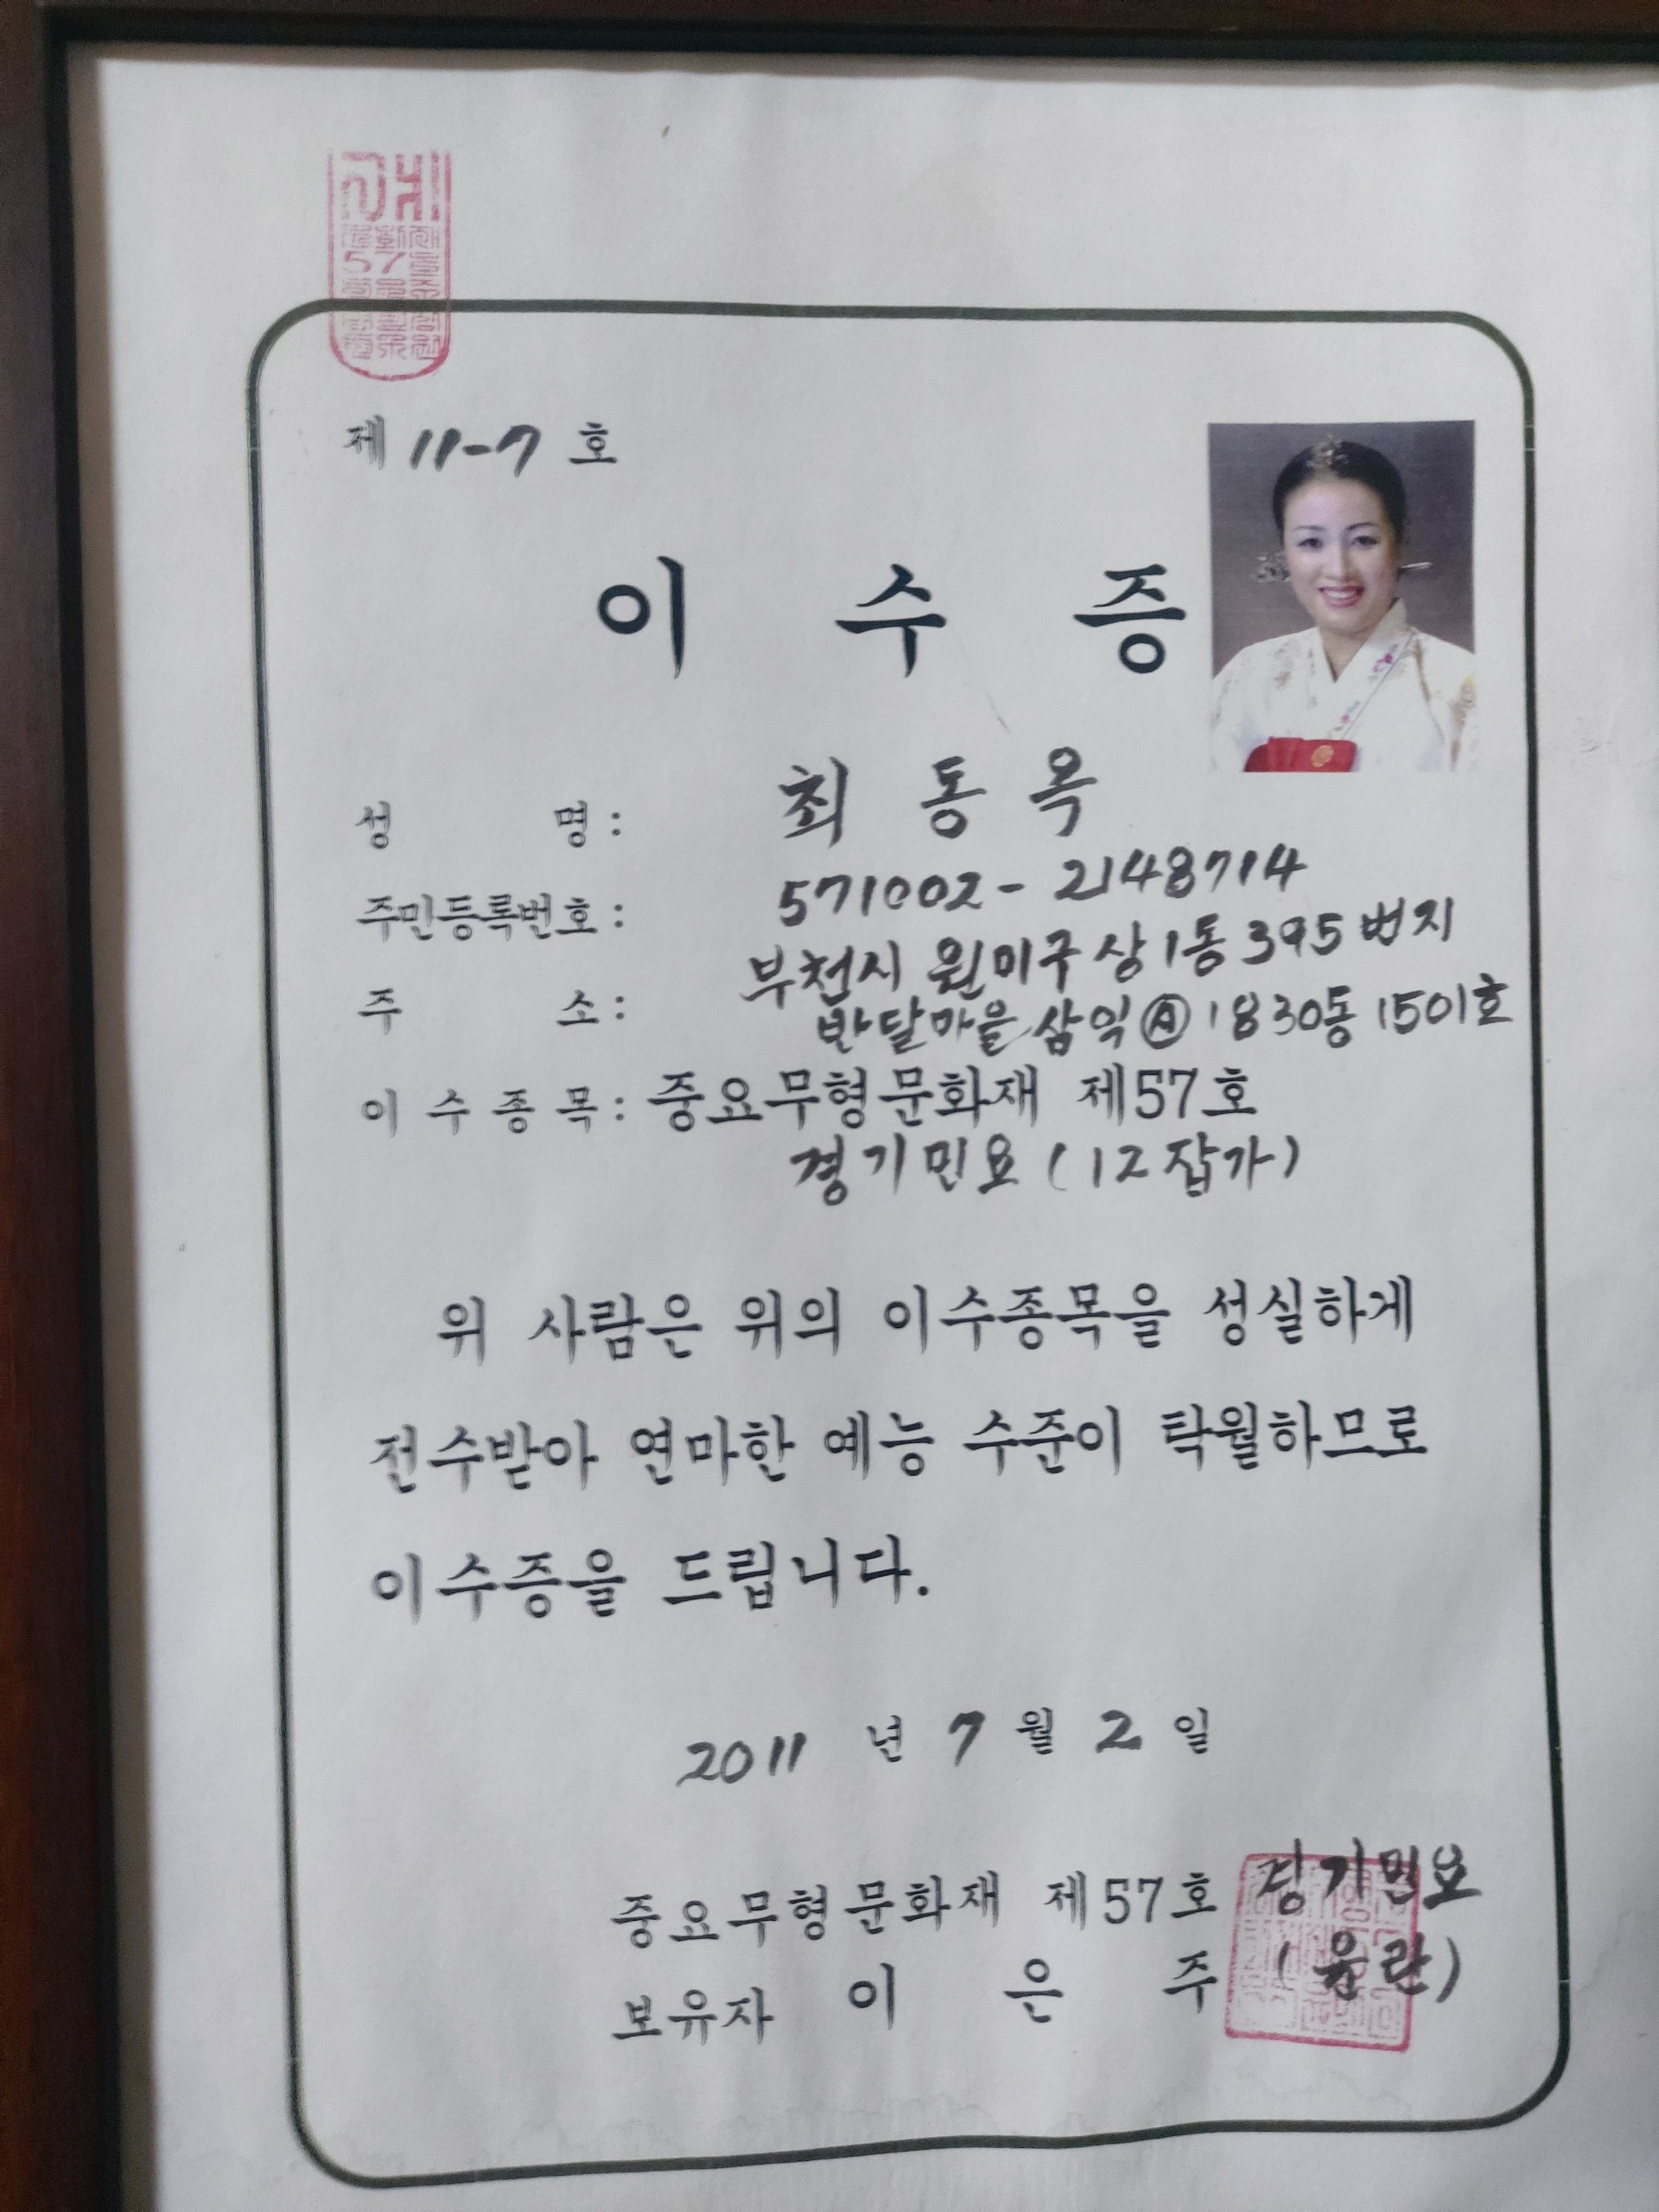 57
제 11-7 호
이 수 증
성 명 : 최 동 옥
주민등록번호 : 571002-2148714
주 소 : 부천시 원미구 상1동 395번지
반달마을 삼익Ⓐ 1830동 1501호
이 수 종 목 : 중요무형문화재 제57호
경기민요 (12잡가)
위 사람은 위의 이수종목을 성실하게
전수받아 연마한 예능 수준이 탁월하므로
이수증을 드립니다.
2011 년 7 월 2 일
중요무형문화재 제57호 경기민요
보유자 이 은 주 (윤란)